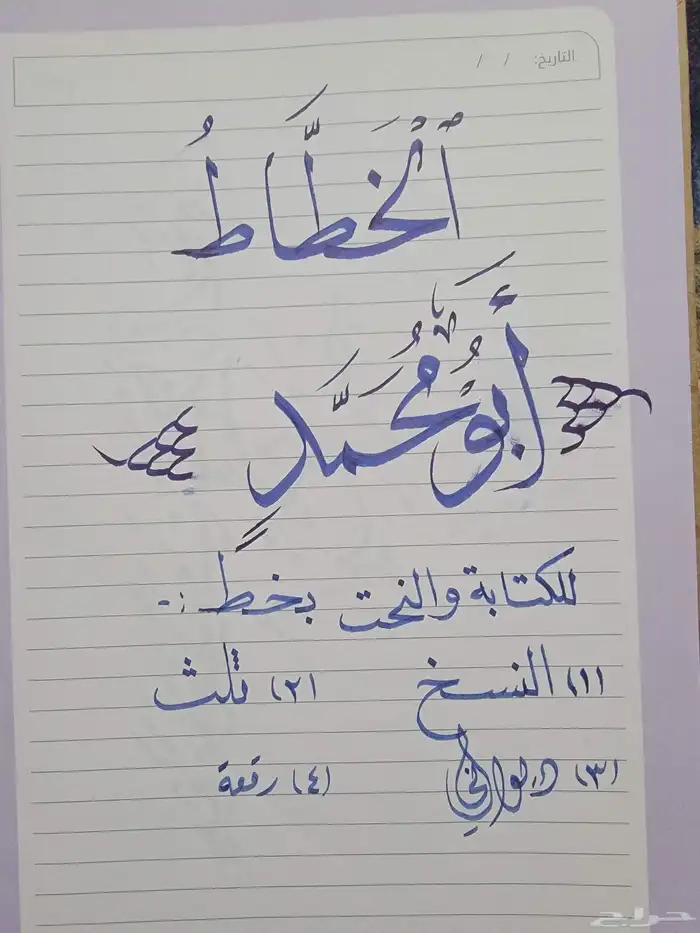 التاريخ: / /
ٱلْخَطَّاطُ
أَبُو مُحَمَّدٍ
للكتابة والنحت بخط :-
(١) النسخ (٢) ثلث
(٣) ديواني (٤) رقعة
حراج